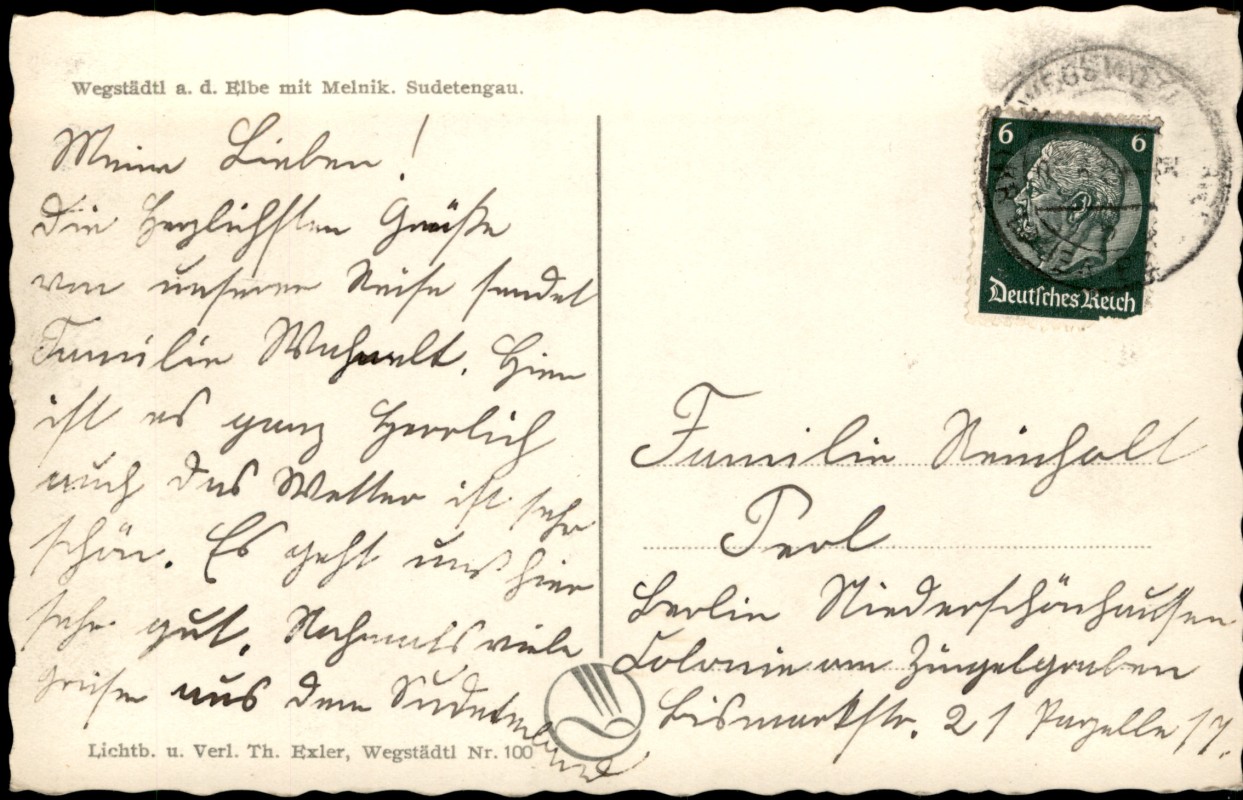 Wegstädtl a. d. Elbe mit Melnik. Sudetengau.
Meine Lieben!
Die herzlichsten Grüße
von unserer Reise sendet
Familie. Hier
ist es ganz herrlich
auch das Wetter ist sehr
schön. Es geht uns hier
sehr gut. Nochmals viele
Grüße aus dem Sudetenland
Lichtb. u. Verl. Th. Exler, Wegstädtl Nr. 100
6 6
Deutsches Reich
Familie Reinholt
Perl
Berlin Niederschönhausen
Colonie am Zingelgraben
Bismarkstr. 21 Parzelle 17.